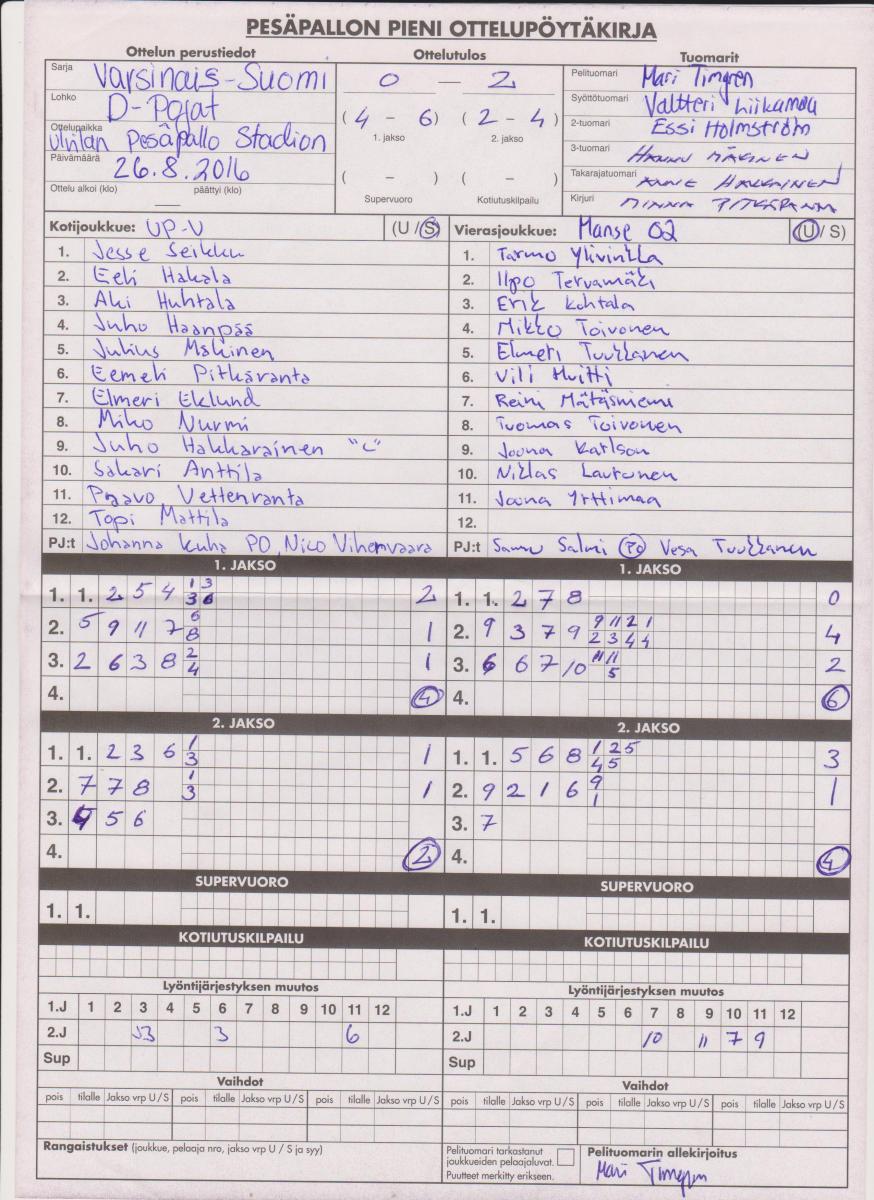 PESÄPALLON PIENI OTTELUPÖYTÄKIRJA
Ottelun perustiedot
Sarja Varsinais-Suomi
Lohko D-Pojat
Ottelupaikka Ulvilan Pesäpallo Stadion
Päivämäärä 26.8.2016
Ottelu alkoi (klo) päättyi (klo)
Ottelutulos
0 — 2
( 4 - 6 ) ( 2 - 4 )
1. jakso 2. jakso
( - ) ( - )
Supervuoro Kotiutuskilpailu
Tuomarit
Pelituomari Mari Timgren
Syöttötuomari Valtteri Liikamaa
2-tuomari Essi Holmström
3-tuomari Hannu Mäkinen
Takarajatuomari Anne Hakkainen
Kirjuri Minna Pitkäranta
Kotijoukkue: UP-V (U / S)
1. Jesse Seikku
2. Eeli Hakala
3. Aki Huhtala
4. Juho Haanpää
5. Julius Mäkinen
6. Eemeli Pitkäranta
7. Elmeri Eklund
8. Miko Nurmi
9. Juho Hakkarainen "C"
10. Sakari Anttila
11. Paavo Vettenranta
12. Topi Mattila
PJ:t Johanna Kuha PO, Nico Vihervaara
Vierasjoukkue: Manse 02 (U / S)
1. Tarmo Ylivinkka
2. Ilpo Tervamäki
3. Erik Kohtala
4. Mikko Toivonen
5. Elmeri Tuukkanen
6. Vili Huitti
7. Reini Mätäsniemi
8. Tuomas Toivonen
9. Joona Karlson
10. Niklas Lautonen
11. Joona Yrttimaa
12.
PJ:t Samu Salmi PO Vesa Tuukkanen
1. JAKSO
1. 1. 2 5 4 1 3 2
3 6
2. 5 9 11 7 6 1
8
3. 2 6 3 8 2 1
4
4. 4
1. JAKSO
1. 1. 2 7 8 0
2. 9 3 7 9 9 11 2 1 4
2 3 4 4
3. 6 6 7 10 11 11 2
5
4. 6
2. JAKSO
1. 1. 2 3 6 1 1
3
2. 7 7 8 1 1
3
3. 4 5 6
4. 2
2. JAKSO
1. 1. 5 6 8 1 2 5 3
4 5
2. 9 2 1 6 9 1
1
3. 7
4. 4
SUPERVUORO
1. 1.
SUPERVUORO
1. 1.
KOTIUTUSKILPAILU
KOTIUTUSKILPAILU
Lyöntijärjestyksen muutos
1.J 1 2 3 4 5 6 7 8 9 10 11 12
2.J 3 6
Sup
Lyöntijärjestyksen muutos
1.J 1 2 3 4 5 6 7 8 9 10 11 12
2.J 10 11 7 9
Sup
Vaihdot
pois tilalle Jakso vrp U/S pois tilalle Jakso vrp U/S pois tilalle Jakso vrp U/S
Vaihdot
pois tilalle Jakso vrp U/S pois tilalle Jakso vrp U/S pois tilalle Jakso vrp U/S
Rangaistukset (joukkue, pelaaja nro, jakso vrp U / S ja syy)
Pelituomari tarkastanut
joukkueiden pelaajaluvat.
Puutteet merkitty erikseen.
Pelituomarin allekirjoitus
Mari Timgren